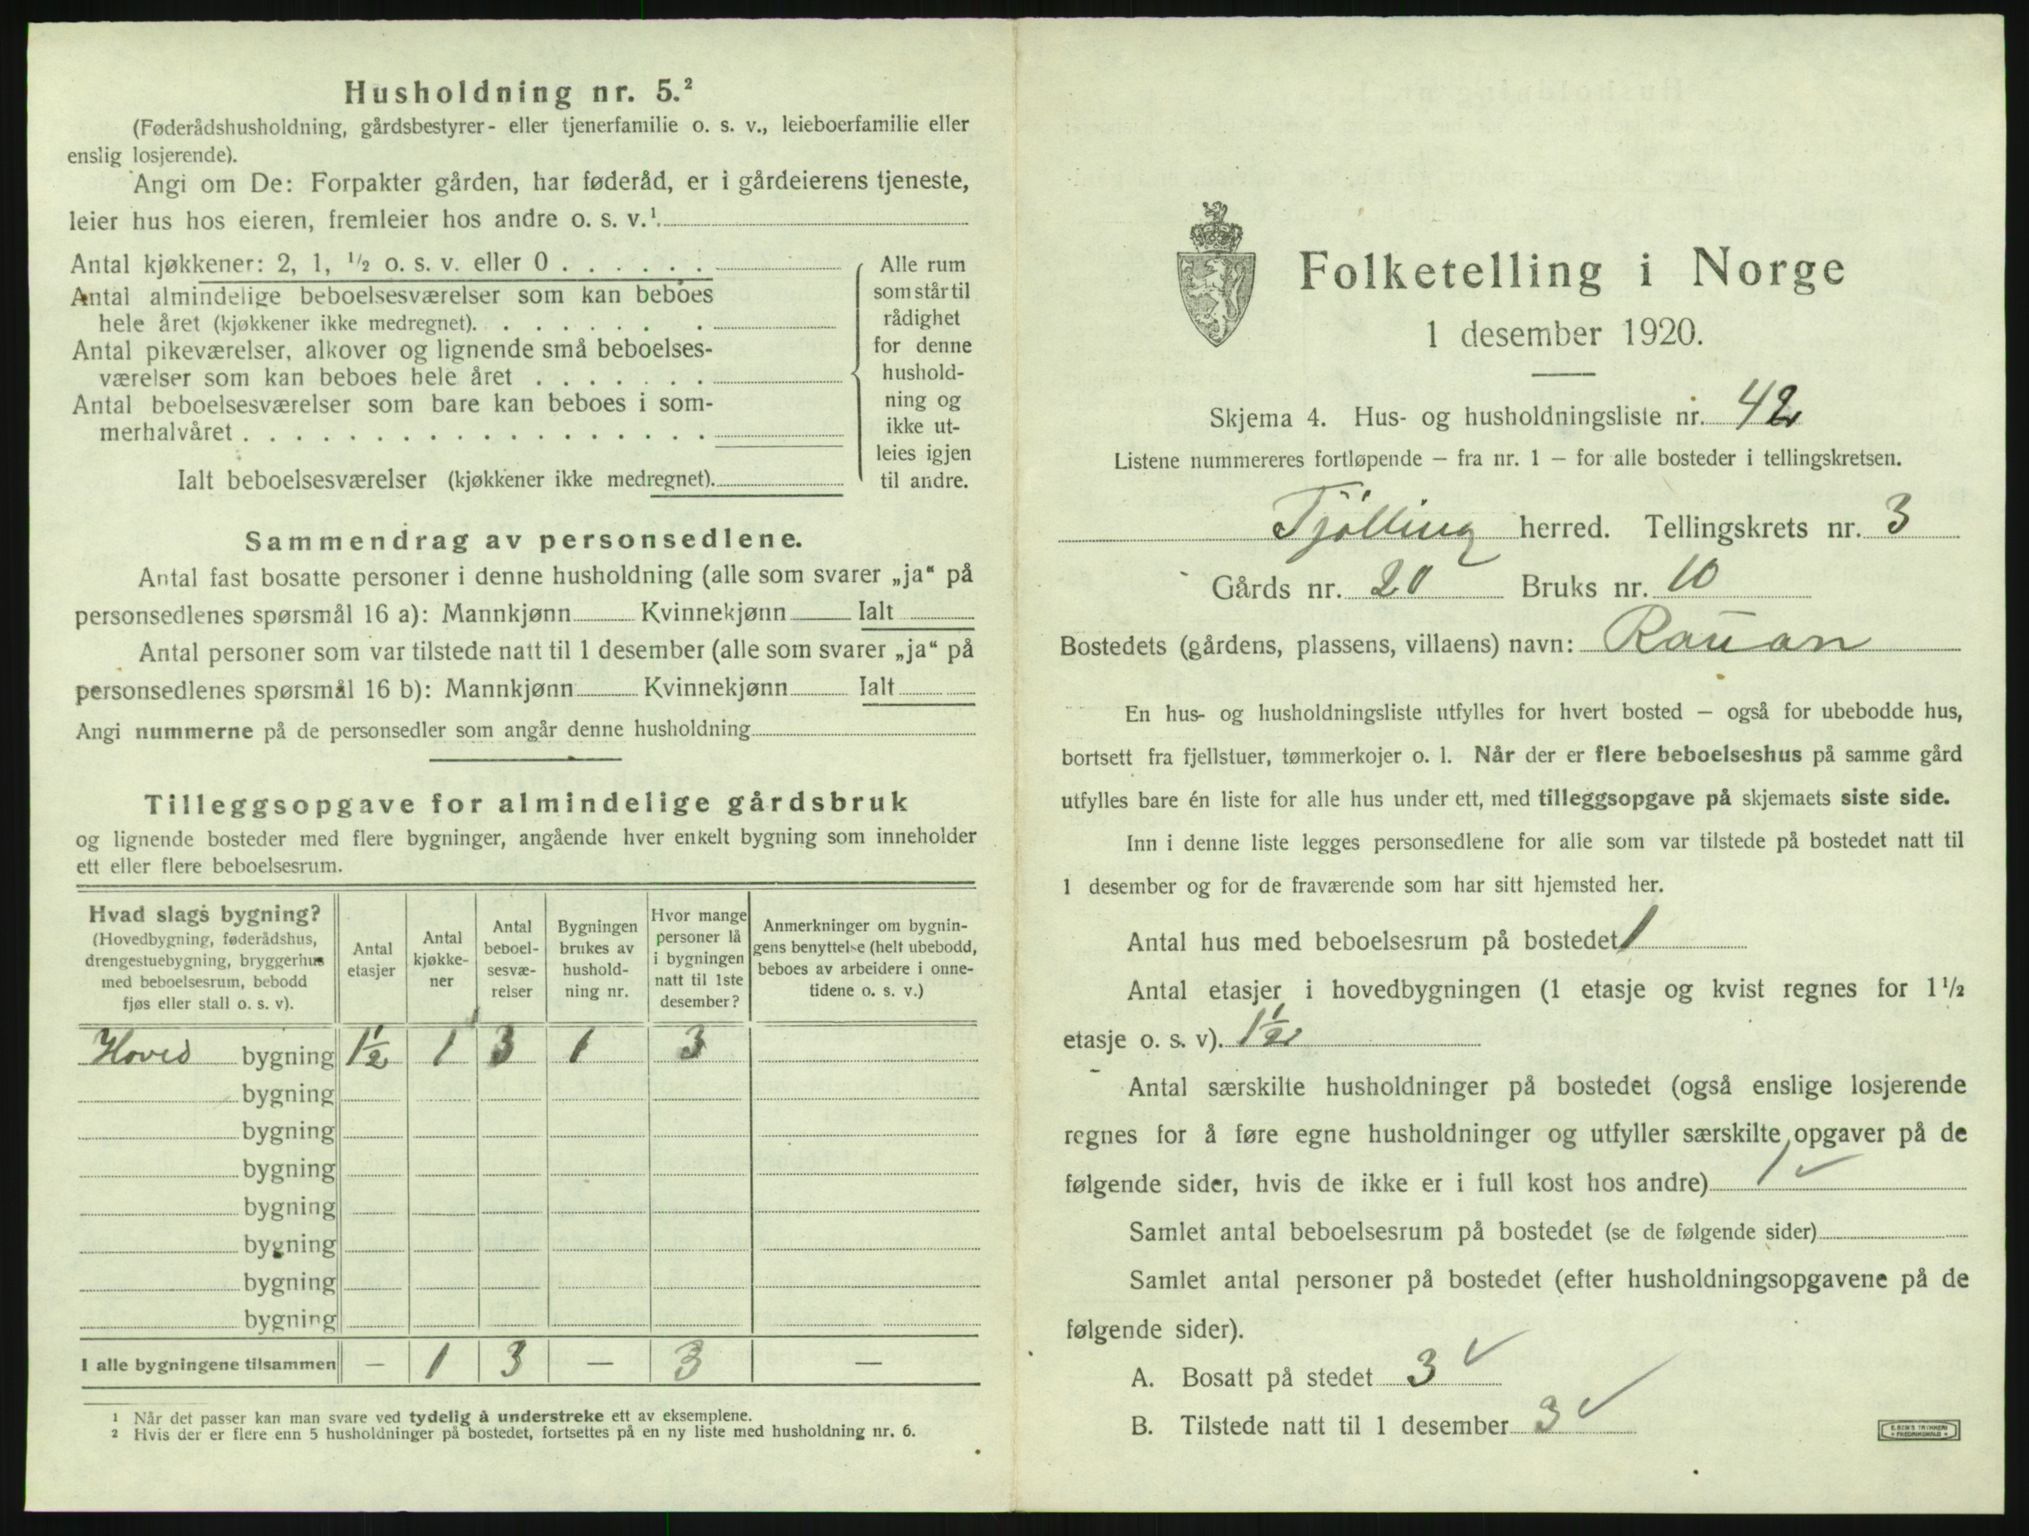 Husholdning nr. 5.²
(Føderådshusholdning, gårdsbestyrer- eller tjenerfamilie o. s. v., leieboerfamilie eller
enslig losjerende).
Angi om De: Forpakter gården, har føderåd, er i gårdeierens tjeneste,
leier hus hos eieren, fremleier hos andre o. s. v.¹
Antal kjøkkener: 2, 1, ½ o. s. v. eller 0 . . . . . .
Antal almindelige beboelsesværelser som kan beboes
hele året (kjøkkener ikke medregnet). . . . . . . .
Antal pikeværelser, alkover og lignende små beboelses-
værelser som kan beboes hele året . . . . . . .
Antal beboelsesværelser som bare kan beboes i som-
merhalvåret . . . . . . . . . . . . . . . . . .
Ialt beboelsesværelser (kjøkkener ikke medregnet).
Alle rum
som står til
rådighet
for denne
hushold-
ning og
ikke ut-
leies igjen
til andre.
Sammendrag av personsedlene.
Antal fast bosatte personer i denne husholdning (alle som svarer „ja“ på
personsedlenes spørsmål 16 a): Mannkjønn Kvinnekjønn Ialt
Antal personer som var tilstede natt til 1 desember (alle som svarer „ja“ på
personsedlenes spørsmål 16 b): Mannkjønn Kvinnekjønn Ialt
Angi nummerne på de personsedler som angår denne husholdning
Tilleggsopgave for almindelige gårdsbruk
og lignende bosteder med flere bygninger, angående hver enkelt bygning som inneholder
ett eller flere beboelsesrum.
Hvad slags bygning?
(Hovedbygning, føderådshus,
drengestuebygning, bryggerhus
med beboelsesrum, bebodd
fjøs eller stall o. s. v).
Antal
etasjer
Antal
kjøkke-
ner
Antal
beboel-
sesvæ-
relser
Bygningen
brukes av
hushold-
ning nr.
Hvor mange
personer lå
i bygningen
natt til 1ste
desember?
Anmerkninger om bygnin-
gens benyttelse (helt ubebodd,
beboes av arbeidere i onne-
tidene o. s. v.)
Hoved bygning 1½ 1 3 1 3
bygning
bygning
bygning
bygning
bygning
bygning
bygning
I alle bygningene tilsammen — 1 3 — 3 —
¹ Når det passer kan man svare ved tydelig å understreke ett av eksemplene.
² Hvis der er flere enn 5 husholdninger på bostedet, fortsettes på en ny liste med husholdning nr. 6.
Folketelling i Norge
1 desember 1920.
Skjema 4. Hus- og husholdningsliste nr. 42
Listene nummereres fortløpende — fra nr. 1 — for alle bosteder i tellingskretsen.
Tjølling herred. Tellingskrets nr. 3
Gårds nr. 20 Bruks nr. 10
Bostedets (gårdens, plassens, villaens) navn: Rauan
En hus- og husholdningsliste utfylles for hvert bosted — også for ubebodde hus,
bortsett fra fjellstuer, tømmerkojer o. l. Når der er flere beboelseshus på samme gård
utfylles bare én liste for alle hus under ett, med tilleggsopgave på skjemaets siste side.
Inn i denne liste legges personsedlene for alle som var tilstede på bostedet natt til
1 desember og for de fraværende som har sitt hjemsted her.
Antal hus med beboelsesrum på bostedet 1
Antal etasjer i hovedbygningen (1 etasje og kvist regnes for 1½
etasje o. s. v). 1½
Antal særskilte husholdninger på bostedet (også enslige losjerende
regnes for å føre egne husholdninger og utfyller særskilte opgaver på de
følgende sider, hvis de ikke er i full kost hos andre) 1 ✓
Samlet antal beboelsesrum på bostedet (se de følgende sider)
Samlet antal personer på bostedet (efter husholdningsopgavene på de
følgende sider).
A. Bosatt på stedet 3 ✓
B. Tilstede natt til 1 desember 3 ✓